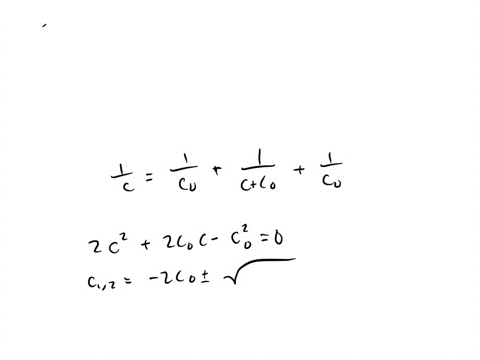 1/C = 1/C₀ + 1/(C+C₀) + 1/C₀
2C² + 2C₀C - C₀² = 0
C₁,₂ = -2C₀ ± √